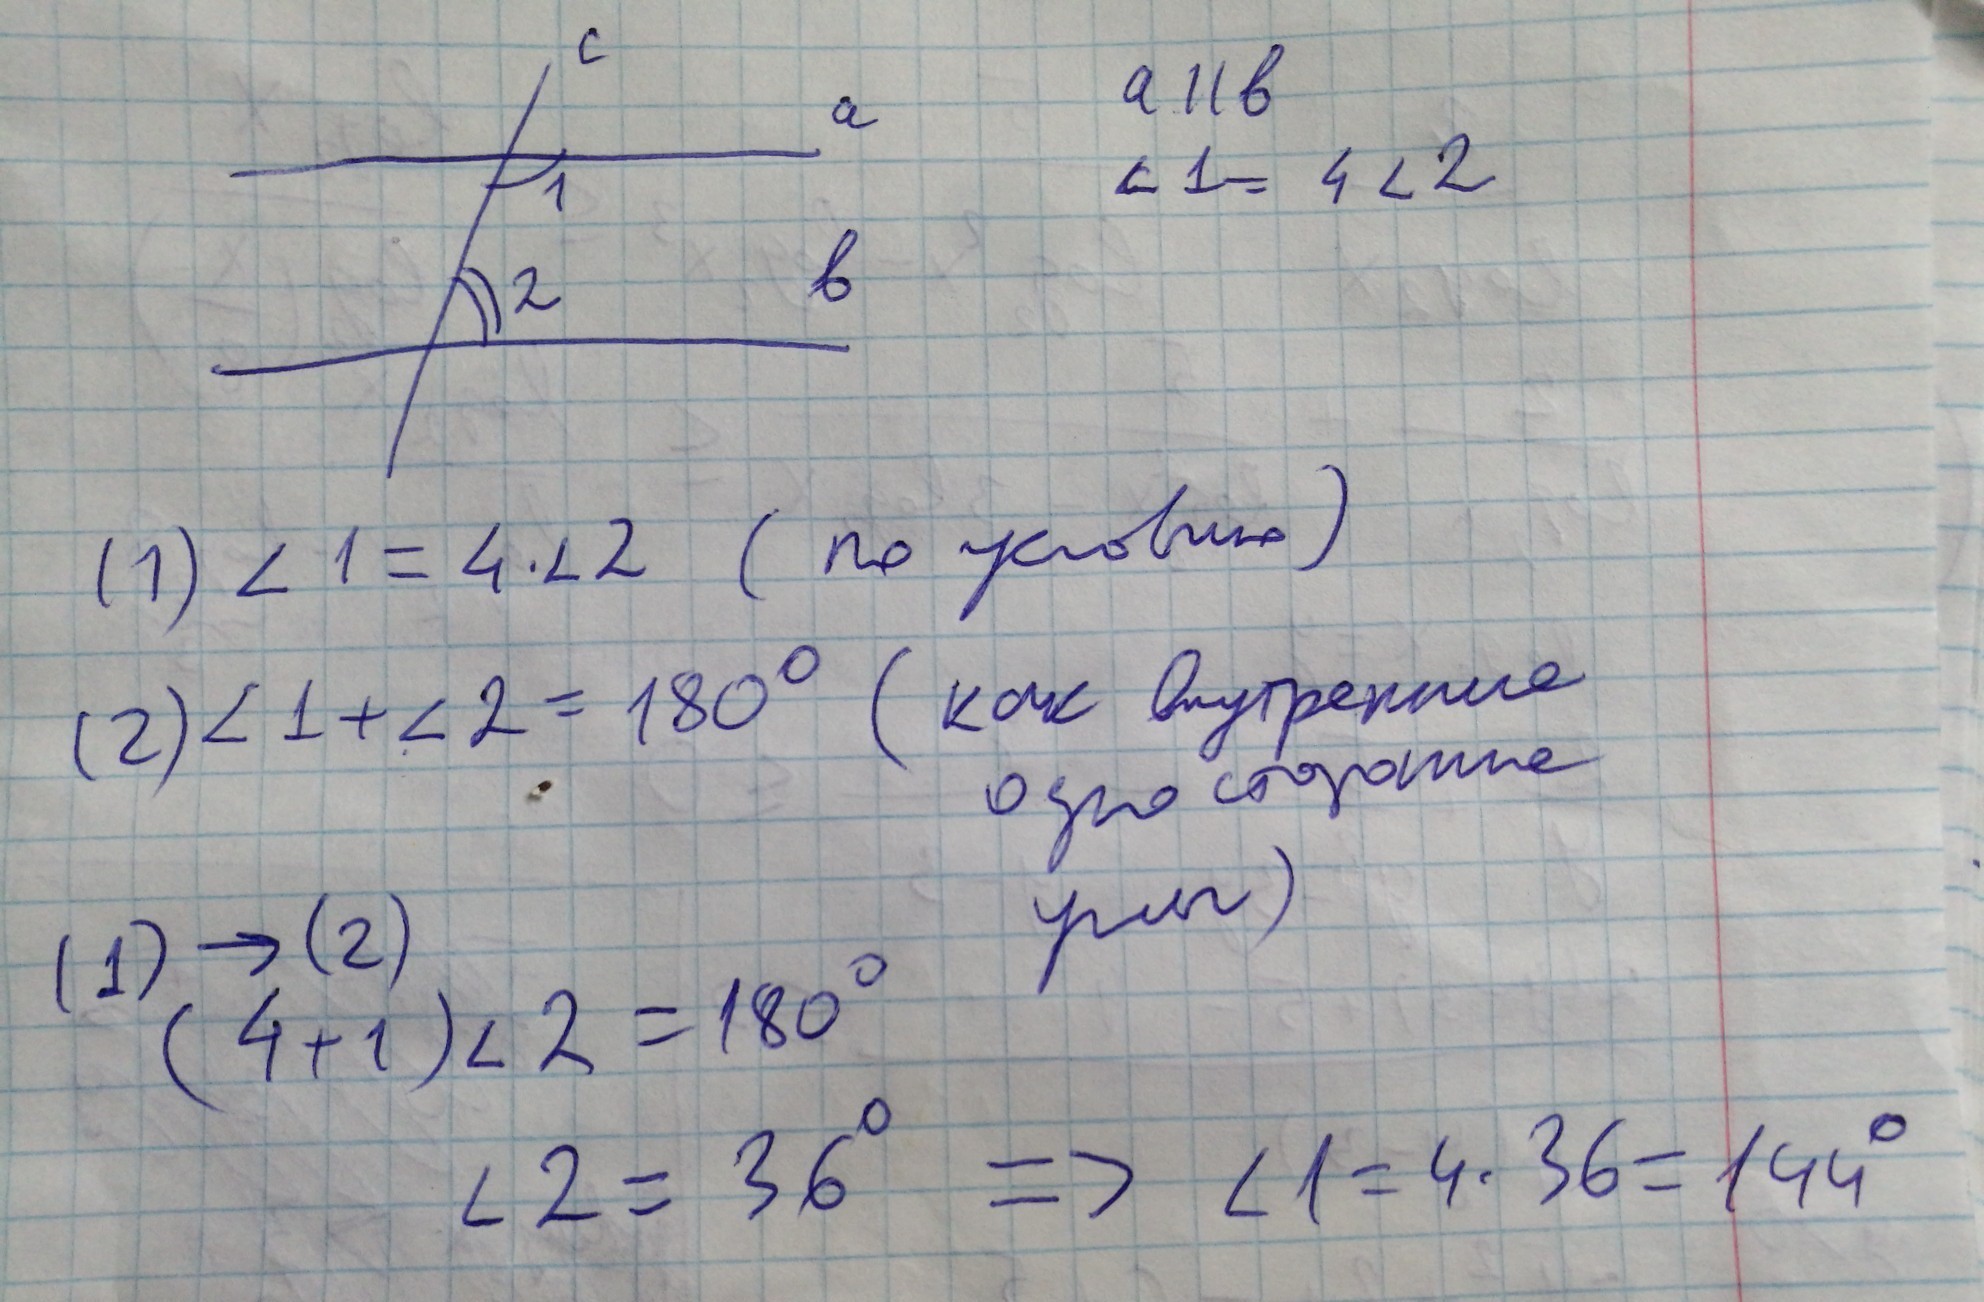 c
a
a || b
1
∠1 = 4∠2
b
2
(1) ∠1 = 4·∠2 (по условию)
(2) ∠1 + ∠2 = 180° (как внутренние
односторонние
углы)
(1) → (2)
(4+1)∠2 = 180°
∠2 = 36° => ∠1 = 4·36 = 144°